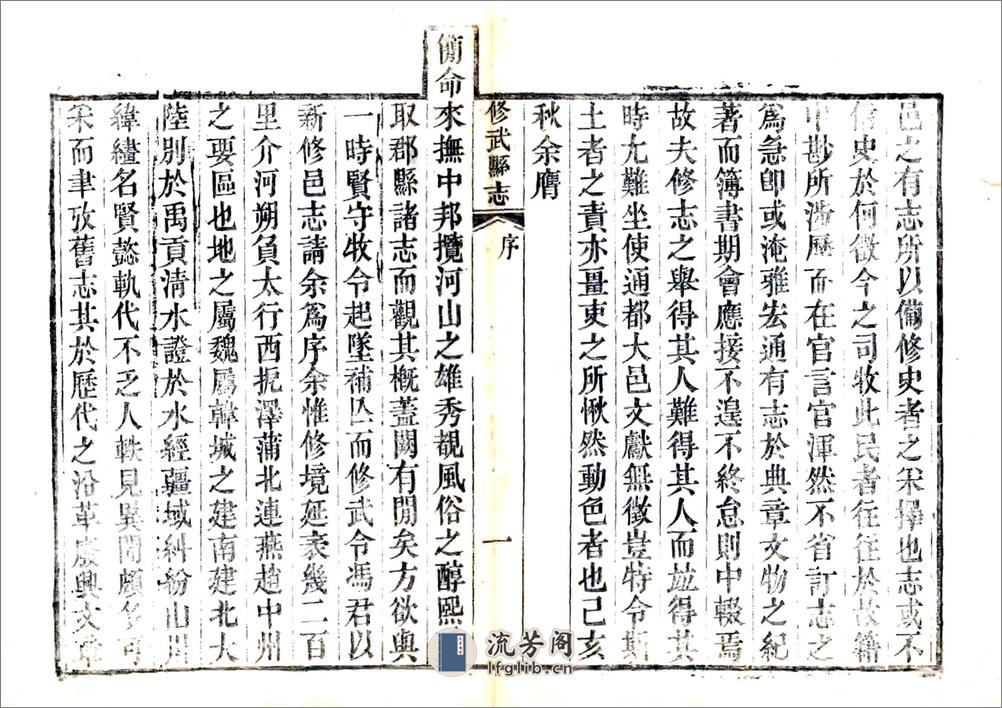 邑之有志所以備修史者之采擇也志或不
信史於何徵今之司牧此民者往往於故籍
中尠所涉歷而在官言官渾然不省訂志之
爲急卽或淹雅宏通有志於典章文物之紀
著而簿書期會應接不遑不終怠則中輟焉
故夫修志之舉得其人難得其人而竝得其
時尢難坐使通都大邑文獻無徵豈特令斯
土者之責亦畺吏之所愀然動色者也己亥
秋余膺
修武縣志
序
一
簡命來撫中邦攬河山之雄秀覩風俗之醇熙
取郡縣諸志而觀其槪蓋闕有閒矣方欲與
一時賢守牧令起墜補亾而修武令馮君以
新修邑志請余爲序余惟修境延袤幾二百
里介河朔負太行西扼澤蒲北連燕趙中州
之要區也地之屬魏屬韓城之建南建北大
陸別於禹貢清水證於水經疆域糾紛山川
緯繣名賢懿軌代不乏人軼見異聞頗多可
采而聿攷舊志其於歷代之沿革廢興文章
流芳阁
lfglib.cn